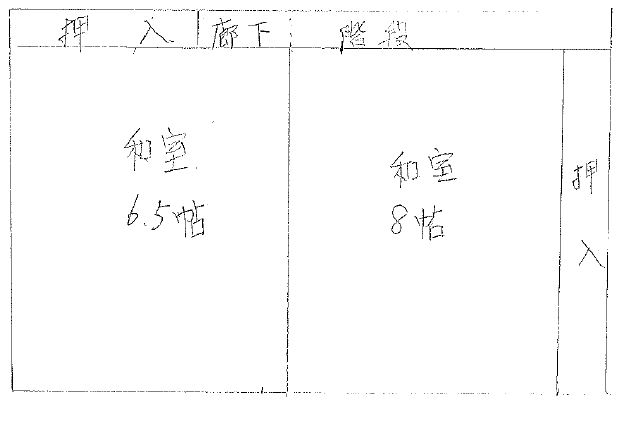 押 入 廊下 階段
和室
6.5帖
和室
8帖
押
入